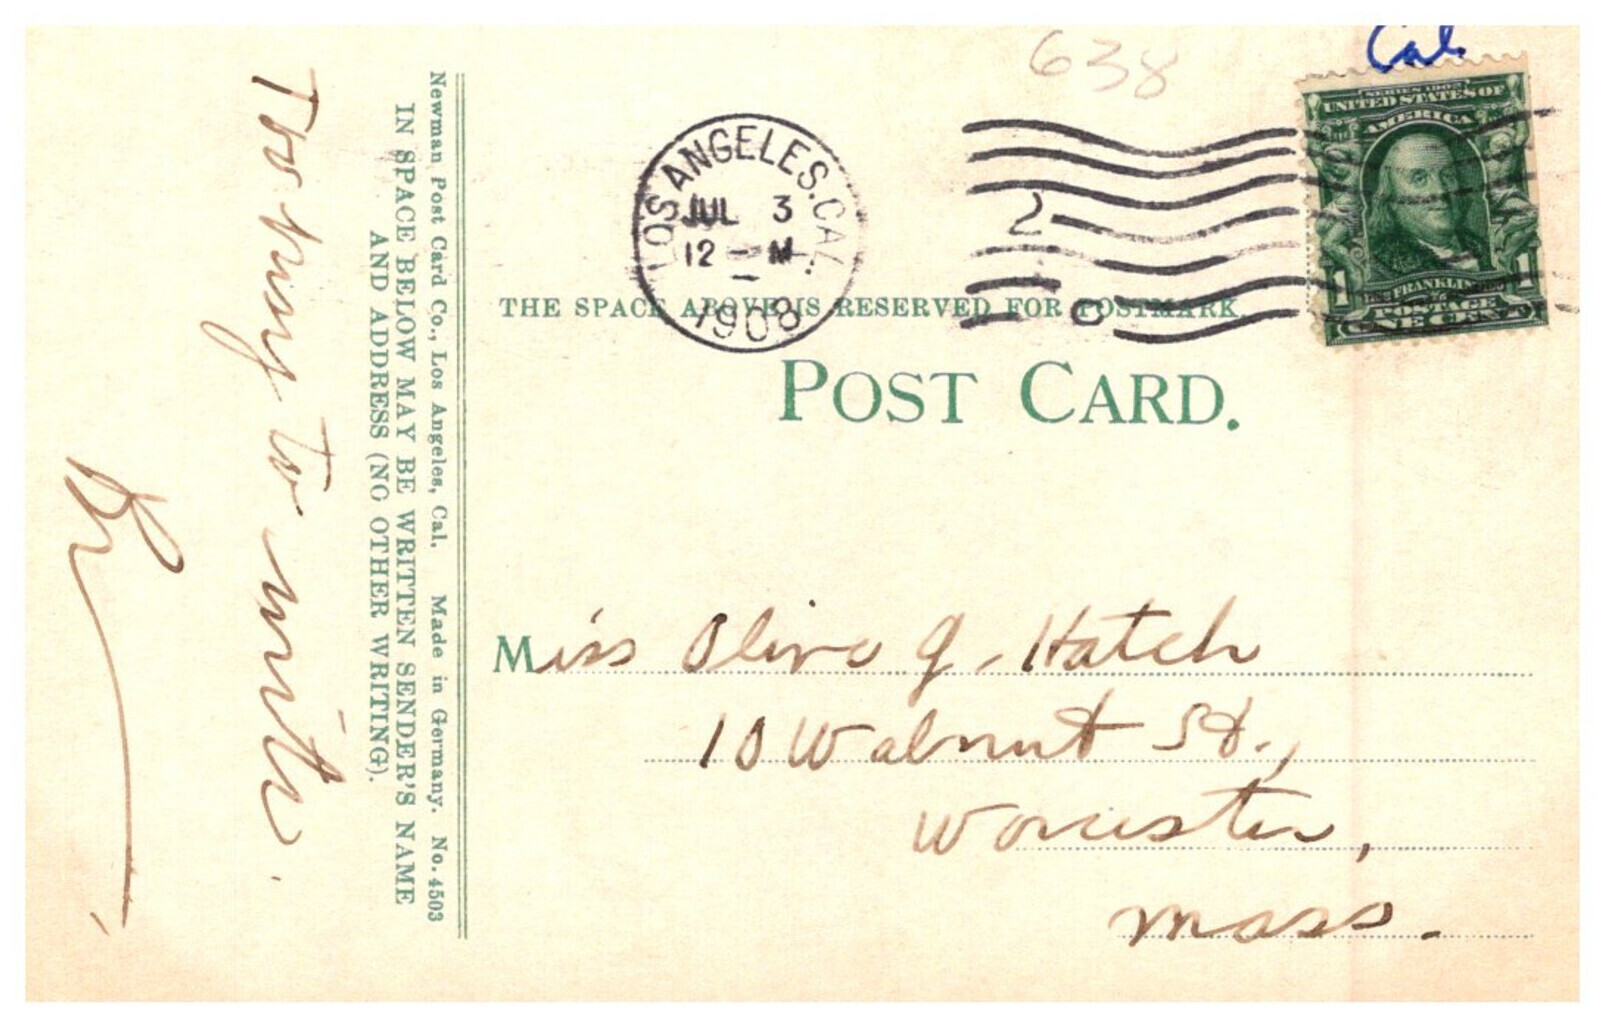 Cal
638
SERIES 1902
UNITED STATES OF
AMERICA
FRANKLIN
POSTAGE
1 1
ONE CENT
LOS ANGELES, CAL.
JUL 3
12 - M
1908
2
THE SPACE ABOVE IS RESERVED FOR POSTMARK
POST CARD.
Newman Post Card Co., Los Angeles, Cal. Made in Germany. No. 4503
IN SPACE BELOW MAY BE WRITTEN SENDER'S NAME
AND ADDRESS (NO OTHER WRITING).
Too busy to write.
Miss Olive J. Hatch
10 Walnut St.,
Worcester,
Mass.